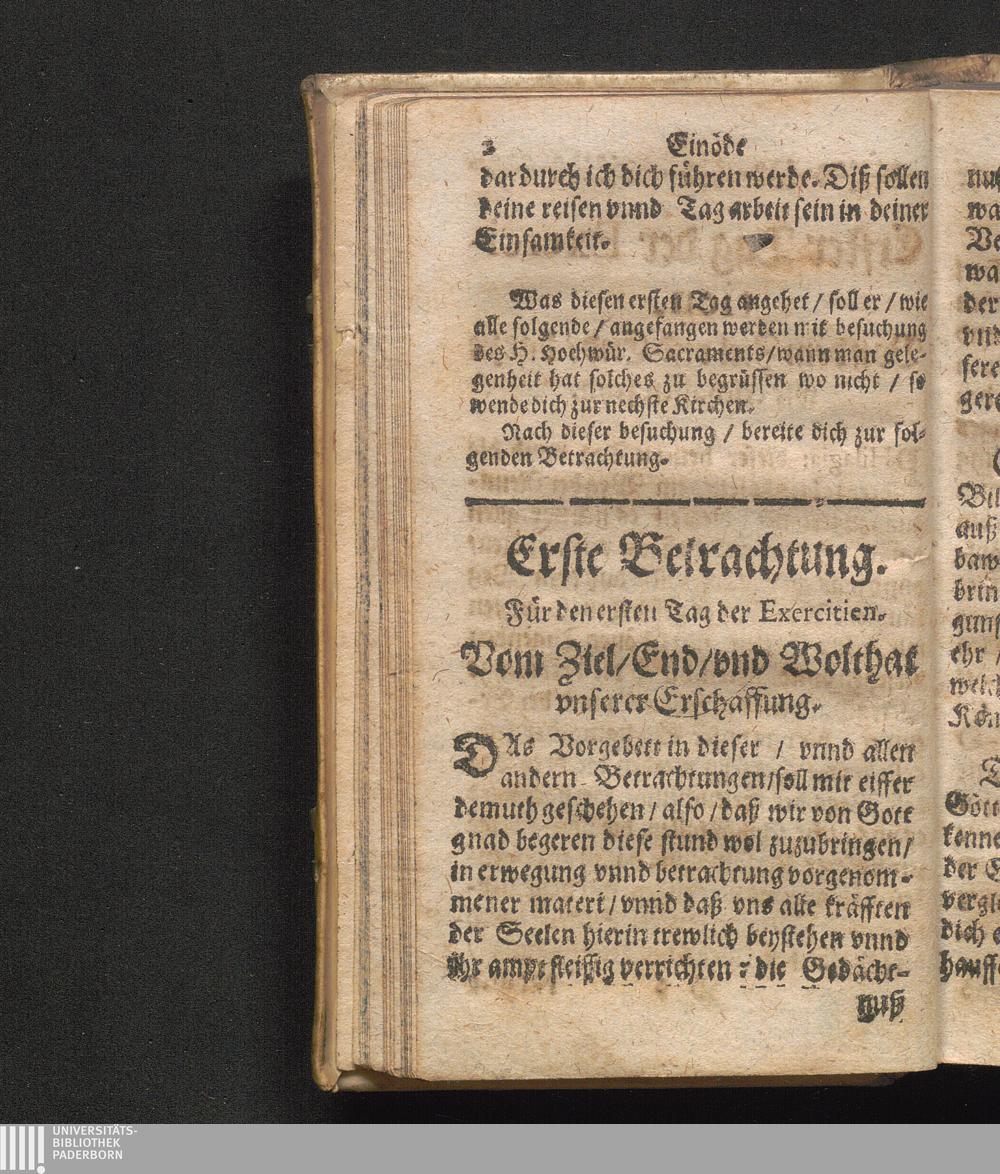 2 Einöde
dardurch ich dich führen werde. Diß sollen
deine reisen vnnd Tag arbeit sein in deiner
Einsamkeit.
Was diesen ersten Tag angehet / soll er / wie
alle folgende / angefangen werden mit besuchung
des H. Hochwür. Sacraments / wann man gele-
genheit hat solches zu begrüssen wo nicht / so
wende dich zur nechste Kirchen.
Nach dieser besuchung / bereite dich zur fol-
genden Betrachtung.
Erste Betrachtung.
Für den ersten Tag der Exercitien.
Vom Ziel/End/vnd Wolthat
vnserer Erschaffung.
DAs Vorgebett in dieser / vnnd allen
andern Betrachtungen/soll mit eiffer
demuth geschehen / also / daß wir von Gott
gnad begeren diese stund wol zuzubringen/
in erwegung vnnd betrachtung vorgenom-
mener materi / vnnd daß vns alle kräfften
der Seelen hierin trewlich beystehen vnnd
ihr ampt fleissig verrichten : die Gedächt-
nuß
wa
Ve
wa
der
vnd
sere
gere
Bil
auß
baw
brin
guns
ehr /
welch
Kön
Gött
kenne
der E
vergl
dich e
hauff
UNIVERSITÄTS-
BIBLIOTHEK
PADERBORN